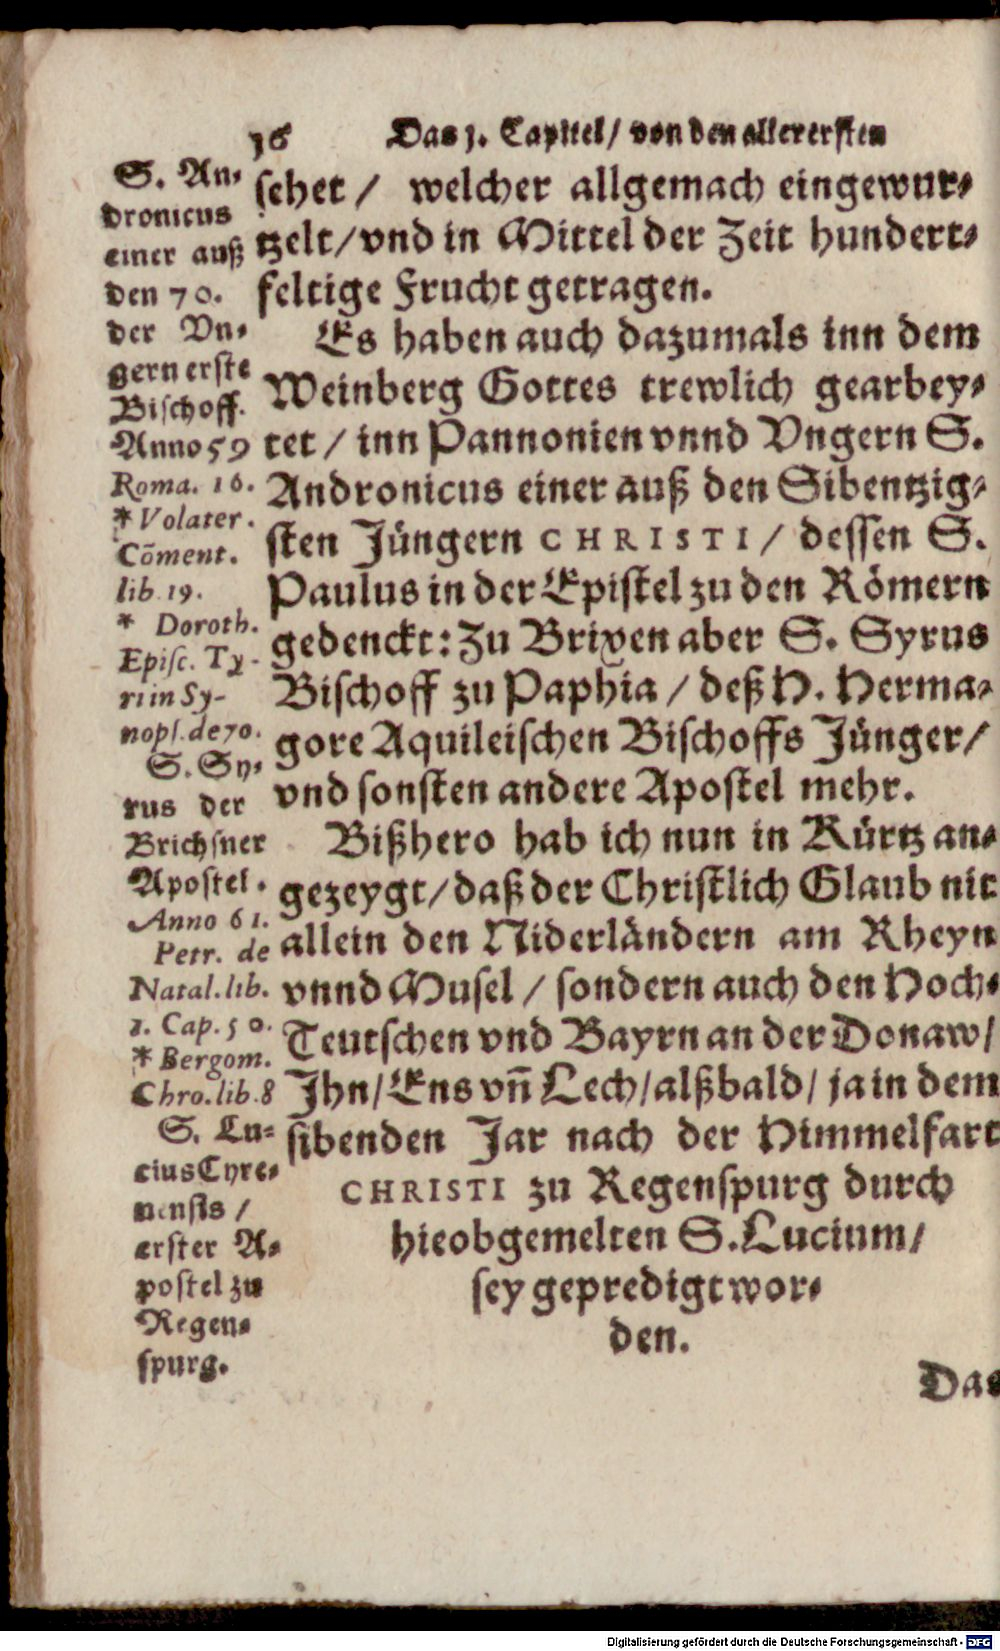 16 Das 1. Capitel / von den allerersten
sehet / welcher allgemach eingewur-
tzelt / vnd in Mittel der Zeit hundert-
feltige Frucht getragen.
Es haben auch dazumals inn dem
Weinberg Gottes trewlich gearbey-
tet / inn Pannonien vnnd Vngern S.
Andronicus einer auß den Sibentzig-
sten Jüngern CHRISTI / dessen S.
Paulus in der Epistel zu den Römern
gedenckt: Zu Brixen aber S. Syrus
Bischoff zu Paphia / deß H. Herma-
gore Aquileischen Bischoffs Jünger /
vnd sonsten andere Apostel mehr.
Bißhero hab ich nun in Kürtz an-
gezeygt / daß der Christlich Glaub nit
allein den Niderländern am Rheyn
vnnd Musel / sondern auch den Hoch-
Teutschen vnd Bayrn an der Donaw /
Ihn / Ens vñ Lech / alßbald / ja in dem
sibenden Jar nach der Himmelfart
CHRISTI zu Regenspurg durch
hieobgemelten S. Lucium /
sey gepredigt wor-
den.
Das
S. An-
dronicus
einer auß
den 70.
der Vn-
gern erste
Bischoff.
Anno 59
Roma. 16.
* Volater.
Cōment.
lib. 19.
* Doroth.
Episc. Ty-
ri in Sy-
nops. de 70.
S. Sy-
rus der
Brichsner
Apostel.
Anno 61.
Petr. de
Natal. lib.
1. Cap. 50.
* Bergom.
Chro. lib. 8
S. Lu-
cius Cyre-
nensis /
erster A-
postel zu
Regen-
spurg.
Digitalisierung gefördert durch die Deutsche Forschungsgemeinschaft - DFG